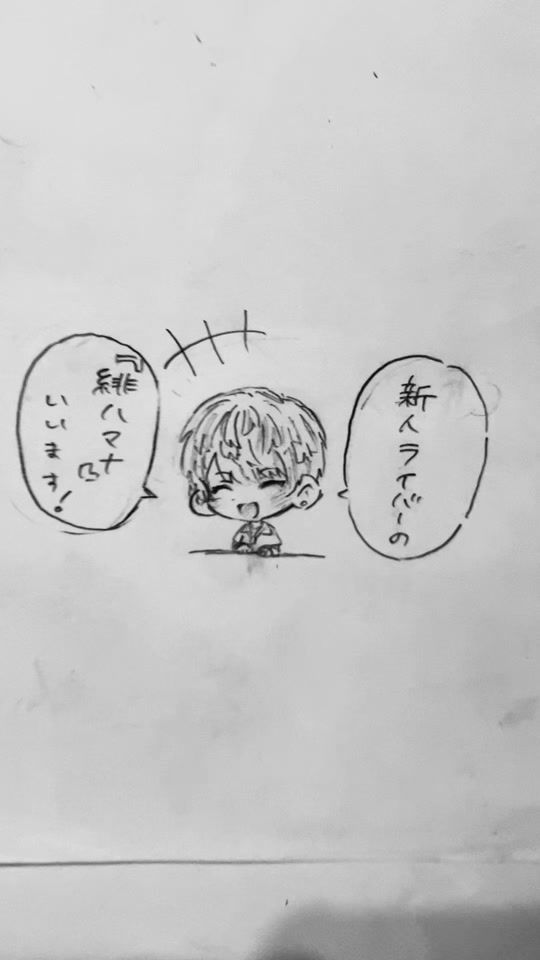 新人ライバーの
『緋八マナ』
いいます!